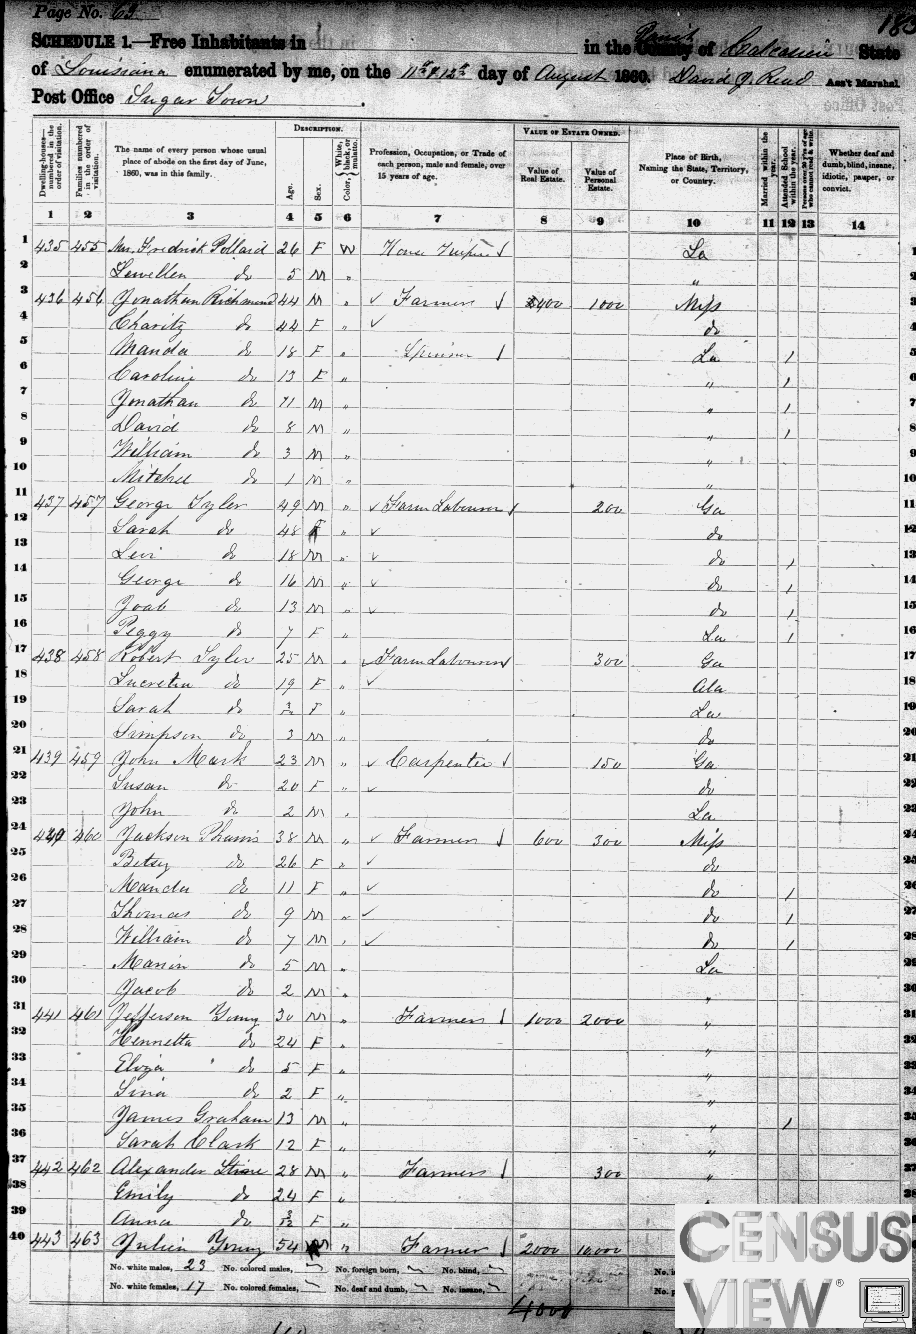 Page No. 69
SCHEDULE 1.—Free Inhabitants in in the County Parish of Calcasieu State
of Louisiana enumerated by me, on the 11th & 12th day of August 1860. David J. Read Ass't Marshal.
Post Office Sugar Town
Dwelling-houses—numbered in the order of visitation.
Families numbered in the order of visitation.
The name of every person whose usual place of abode on the first day of June, 1860, was in this family.
DESCRIPTION.
Age.
Sex.
Color, White, black, or mulatto.
Profession, Occupation, or Trade of each person, male and female, over 15 years of age.
VALUE OF ESTATE OWNED.
Value of Real Estate.
Value of Personal Estate.
Place of Birth, Naming the State, Territory, or Country.
Married within the year.
Attended School within the year.
Persons over 20 y'rs of age who cannot read & write.
Whether deaf and dumb, blind, insane, idiotic, pauper, or convict.
1 2 3 4 5 6 7 8 9 10 11 12 13 14
1 435 455 Mrs. Fredrick Pollard 26 F W House Keeper La 1
2 Lewellen do 5 M " "
3 436 456 Jonathan Richmond 44 M " Farmer 400 1000 Miss 3
4 Charity do 44 F " do
5 Manda do 18 F " Spinner La 1 5
6 Caroline do 13 F " " 1 6
7 Jonathan do 11 M " " 1 7
8 David do 8 M " " 1 8
9 William do 3 M " " 9
10 Mitchel do 1 M " " 10
11 437 457 George Tyler 49 M " Farm Labourer 200 Ga 11
12 Sarah do 48 F " do 12
13 Levi do 18 M " do 1 13
14 George do 16 M " do 1 14
15 Joab do 13 M " do 1 15
16 Peggy do 7 F " La 1 16
17 438 458 Robert Tyler 25 M " Farm Labourer 300 Ga 17
18 Lucretia do 19 F " Ala 18
19 Sarah do F " La 19
20 Simpson do 3 M " do 20
21 439 459 John Mark 23 M " Carpenter 150 Ga 21
22 Susan do 20 F " do 22
23 John do 2 M " La 23
24 460 Jackson 38 M " Farmer 600 300 Miss 24
25 Betsy do 26 F " do 25
26 Manda do 11 F " do 1 26
27 Thomas do 9 M " do 1 27
28 William do 7 M " do 1 28
29 do 5 M " La 29
30 Jacob do 2 M " " 30
31 441 461 Jefferson Young 30 M " Farmer 1000 2000 " 31
32 Henretta do 24 F " " 32
33 Eliza " do 5 F " " 33
34 do 2 F " " 34
35 James Graham 13 M " " 1 35
36 Sarah Clark 12 F " " 36
37 442 462 Alexander 28 M " Farmer 300 " 37
38 Emily do 24 F " 38
39 Anna do 3/12 F "
40 443 463 Julien Young 54 M " Farmer 2000 10,000
No. white males, 23 No. colored males, No. foreign born, No. blind,
No. white females, 17 No. colored females, No. deaf and dumb, No. insane,
4000
CENSUS
VIEW®